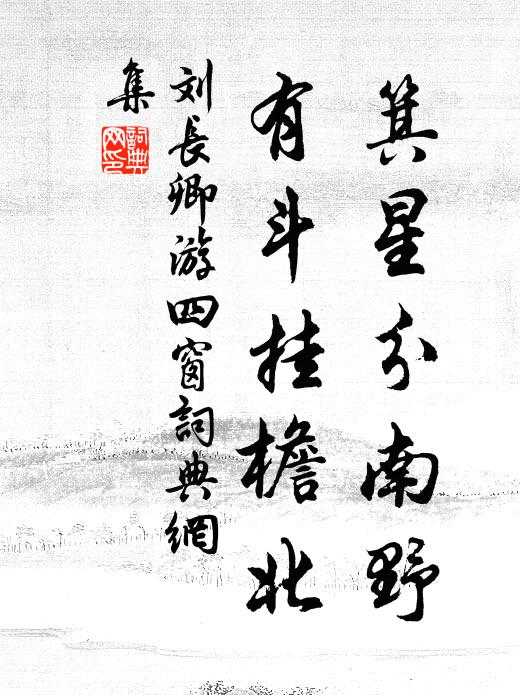 箕星分南野
有斗挂檐北
刘長卿游四窗詞典網
集
詞典网印